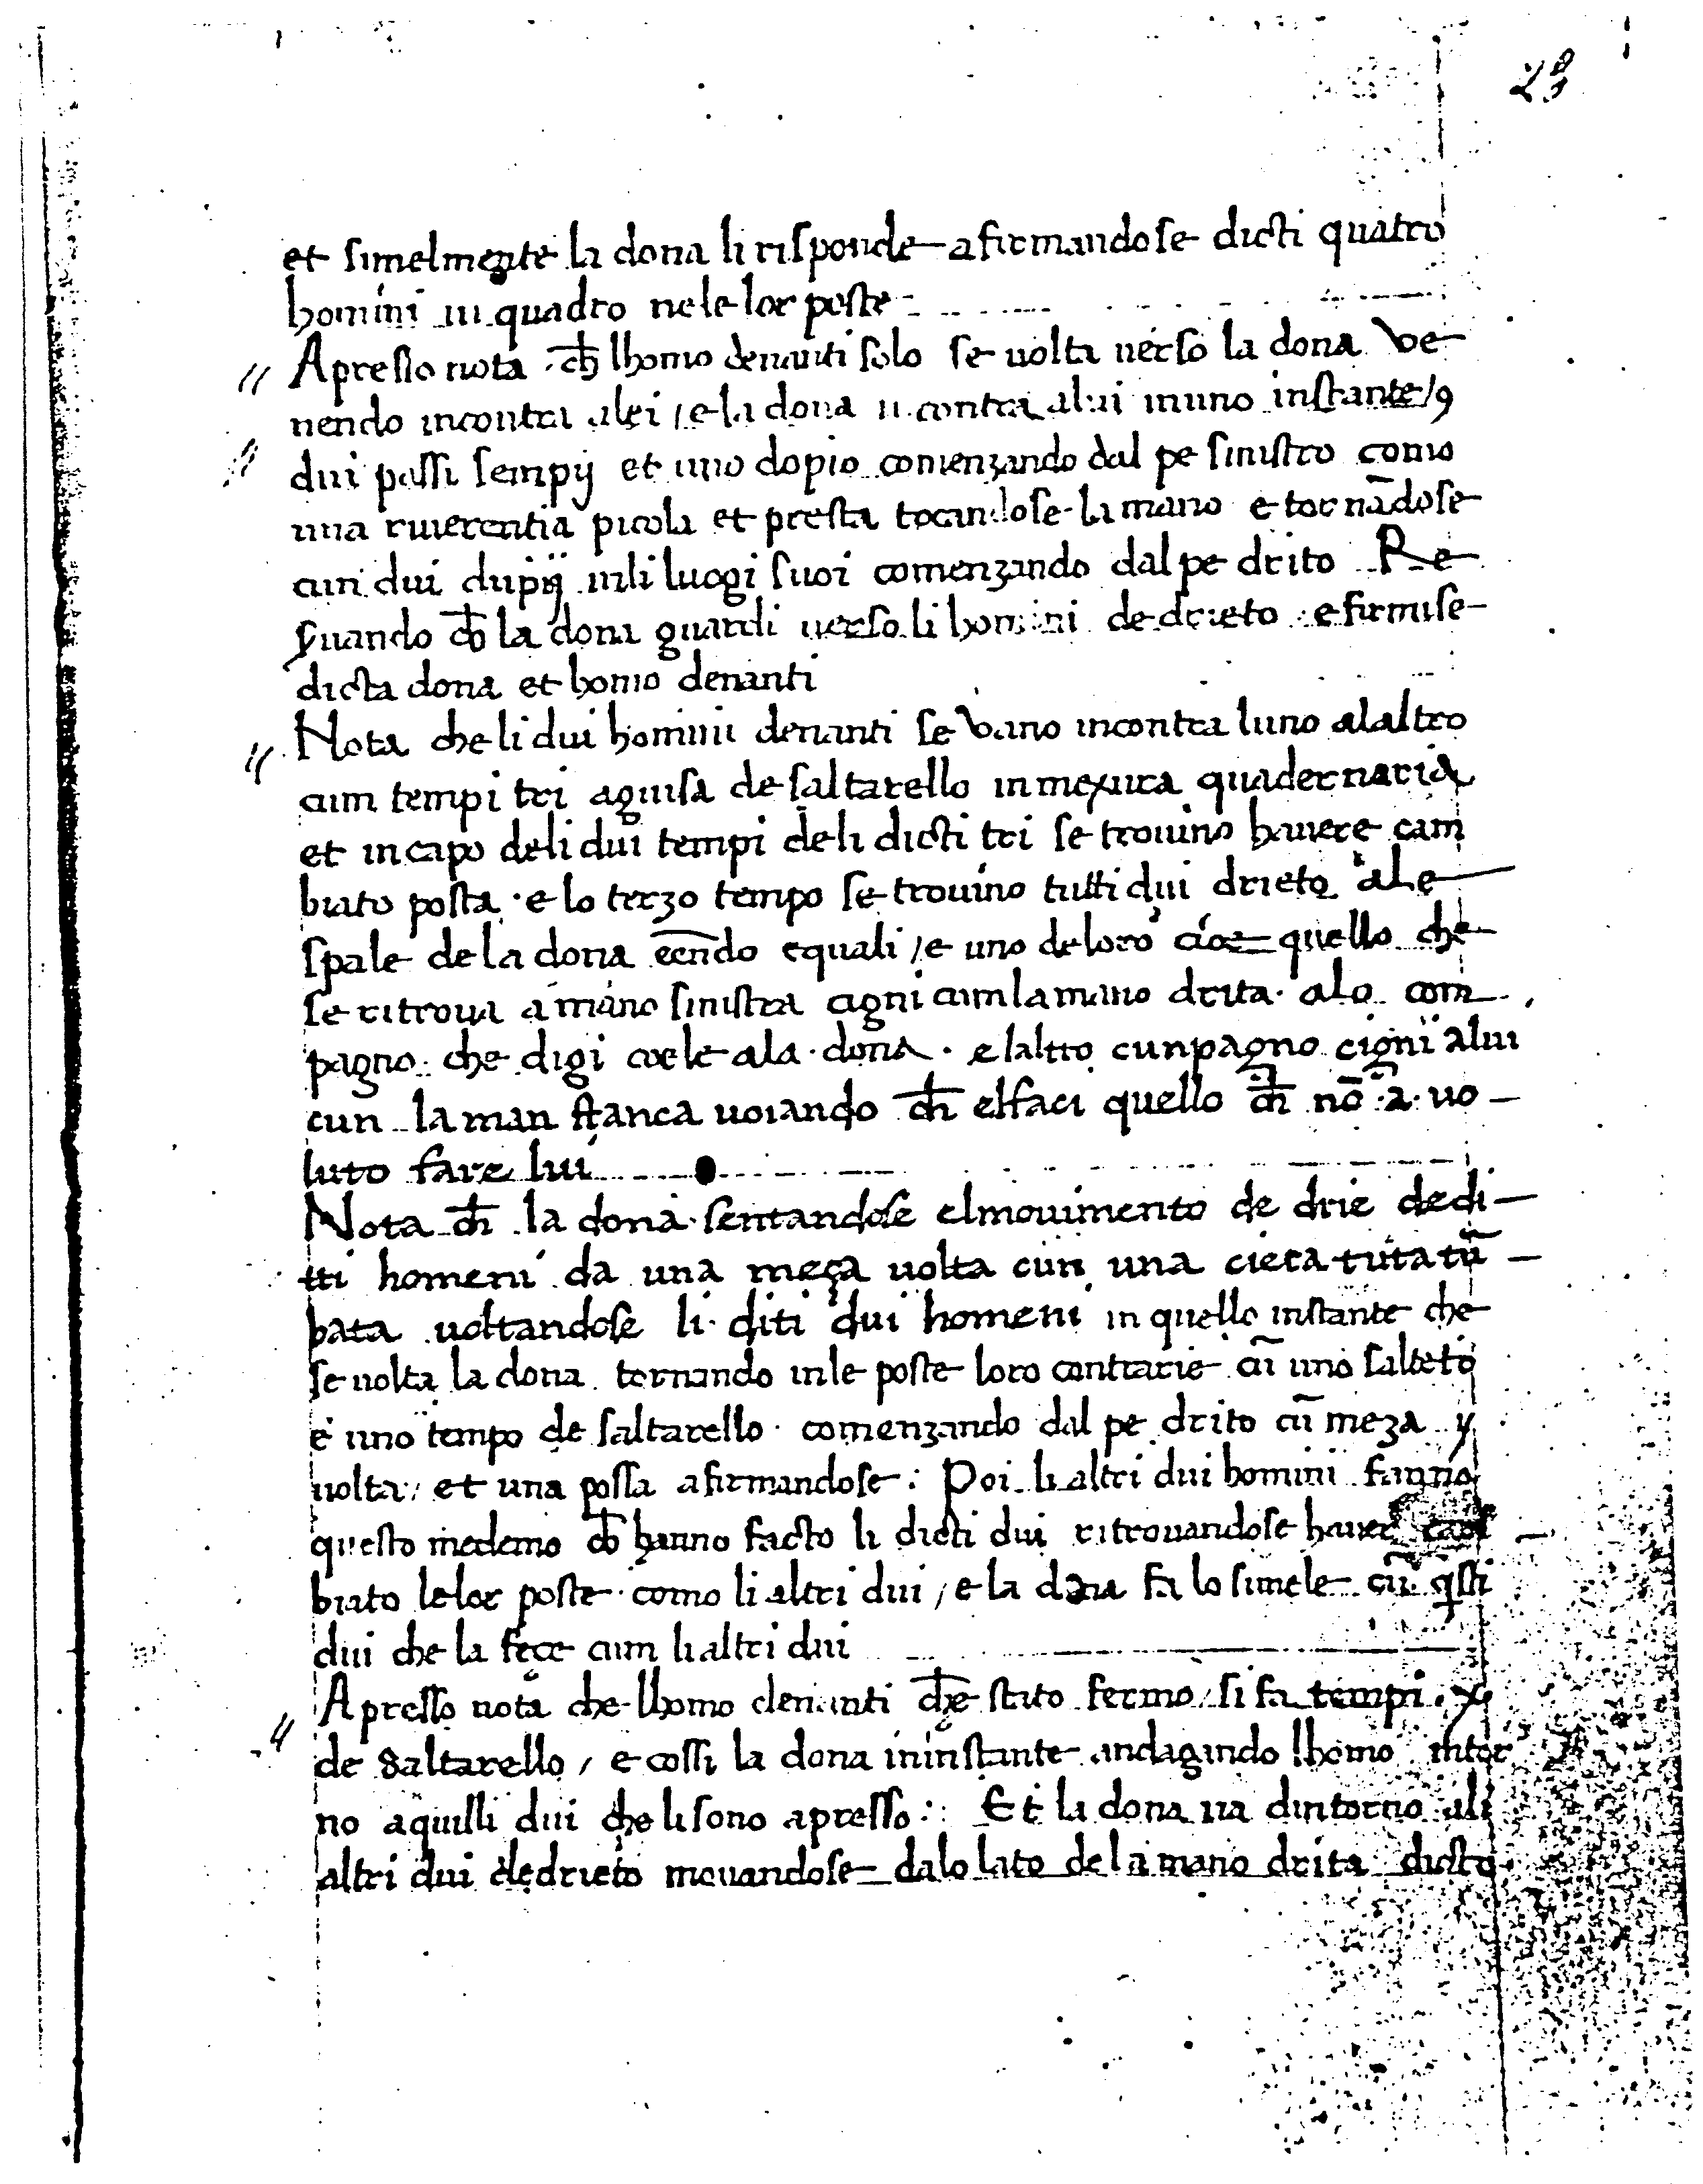 23
et simelmente la dona li risponde afirmandose dicti quatro
homini in quadro nele lor poste
Apresso nota ch̄ lhomo denanti solo se uolta uerso la dona Ve
nendo incontra alei / e la dona incontra alui inuno instante / 9
dui passi sempij et uno dopio comenzando dal pe sinistro como
una riuerentia picola et presta tocandose la mano e tornādose
cun dui dupij inli luogi suoi comenzando dal pe drito Re
guando ch̄ la dona guardi uerso li homini de drieto e firmise
dicta dona et homo denanti
Nota che li dui homini denanti se Vano incontra luno alaltro
cum tempi tri aguisa de saltarello in mexura quadernaria
et incapo deli dui tempi deli dicti tri se trouino hauere cam
biato posta · e lo terzo tempo se trouino tutti dui drieto ale
spale de la dona eēndo equali / e uno de loro cioe quello che
se ritroua a mano sinistra cigni cum la mano drita alo com
pagno che digi coele ala · dona · e laltro cunpagno cigni alui
cun la man stanca uoiando ch̄ el faci quello ch̄ nō · a · uo
luto fare lui
Nota ch̄ la dona sentandose el mouimento de drie de di
tti homeni da una meça uolta cun una cieta tuta tū
bata uoltandose li diti dui homeni in quello instante che
se uolta la dona tornando inle poste loro contrarie cū uno salteto
e uno tempo de saltarello · comenzando dal pe drito cū meza
uolta / et una possa afirmandose : Poi li altri dui homini fanno
questo medemo ch̄ hanno facto li dicti dui ritrouandose hauer cam
biato le lor poste · como li altri dui / e la dona fa lo simele cū q̄sti
dui che la fece cum li altri dui
Apresso nota che lhomo denanti che stato fermo / si fa tempi
de saltarello / e cossi la dona in instante andagando lhomo intor
no aquilli dui che li sono apresso : Et la dona ua dintorno ali
altri dui dedrieto mouandose dalo lato de la mano drita dicto